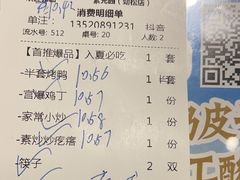 10.42
消费明细单
订单: 13520891231 抖音
流水号: 512 桌号: 20 人数: 2
【首推爆品】入夏必吃 1 套
-半套烤鸭 10.56 1 套
-宫爆鸡丁 10.57 1 份
-家常小炒 10.58 1 份
-素炒炒疙瘩 10.57 1 份
筷子 2 双
皮